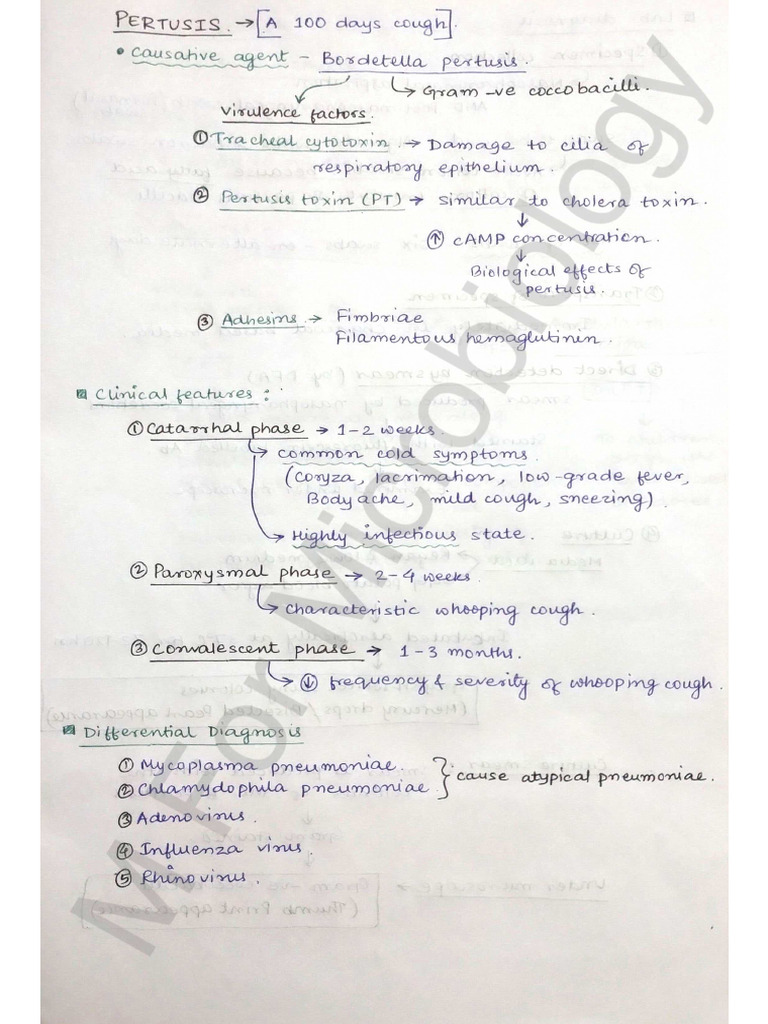 PERTUSIS. → [A 100 days cough].
• Causative agent - Bordetella pertusis.
Gram -ve coccobacilli.
Virulence factors.
① Tracheal cytotoxin → Damage to cilia of
respiratory epithelium.
② Pertusis toxin (PT) → similar to cholera toxin.
↓
↑ cAMP concentration.
↓
Biological effects of
pertusis.
③ Adhesins → Fimbriae
Filamentous hemaglutinin.
Clinical features :
① Catarrhal phase → 1-2 weeks.
common cold symptoms.
(Coryza, lacrimation, low-grade fever,
Body ache, mild cough, sneezing).
Highly infectious state.
② Paroxysmal phase → 2-4 weeks.
characteristic whooping cough.
③ Convalescent phase → 1-3 months.
↓ frequency & severity of whooping cough.
Differential Diagnosis
① Mycoplasma pneumoniae.
② Chlamydophila pneumoniae.
} cause atypical pneumoniae.
③ Adenovirus.
④ Influenza virus.
⑤ Rhinovirus.
M For Microbiology